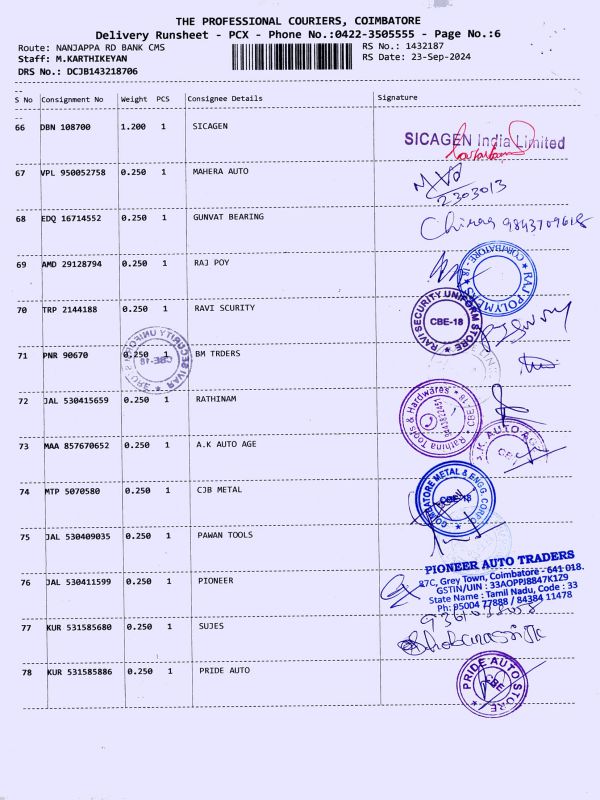 THE PROFESSIONAL COURIERS, COIMBATORE
Delivery Runsheet - PCX - Phone No.:0422-3505555 - Page No.:6
Route: NANJAPPA RD BANK CMS
RS No.: 1432187
Staff: M.KARTHIKEYAN
RS Date: 23-Sep-2024
DRS No.: DCJB143218706
S No Consignment No Weight PCS Consignee Details Signature
66 DBN 108700 1.200 1 SICAGEN
SICAGEN India Limited
67 VPL 950052758 0.250 1 MAHERA AUTO
2303013
68 EDQ 16714552 0.250 1 GUNVAT BEARING
Chirag 9843709618
69 AMD 29128794 0.250 1 RAJ POY
RAJ POLYMERS COIMBATORE - 18
70 TRP 2144188 0.250 1 RAVI SCURITY
RAVI SECURITY UNIFORM STORE
CBE-18
71 PNR 90670 0.250 1 BM TRDERS
72 JAL 530415659 0.250 1 RATHINAM
Rathina Tools & Hardwares
73 MAA 857670652 0.250 1 A.K AUTO AGE
A.K. AUTO AGE
74 MTP 5070580 0.250 1 CJB METAL
COIMBATORE METAL & ENGG. CORPO
CBE-18
75 JAL 530409035 0.250 1 PAWAN TOOLS
76 JAL 530411599 0.250 1 PIONEER
PIONEER AUTO TRADERS
87C, Grey Town, Coimbatore - 641 018.
GSTIN/UIN : 33AOPPJ8847K1Z9
State Name : Tamil Nadu, Code : 33
Ph: 95004 77888 / 84384 11478
77 KUR 531585680 0.250 1 SUJES
78 KUR 531585886 0.250 1 PRIDE AUTO
PRIDE AUTO STORE
CBE